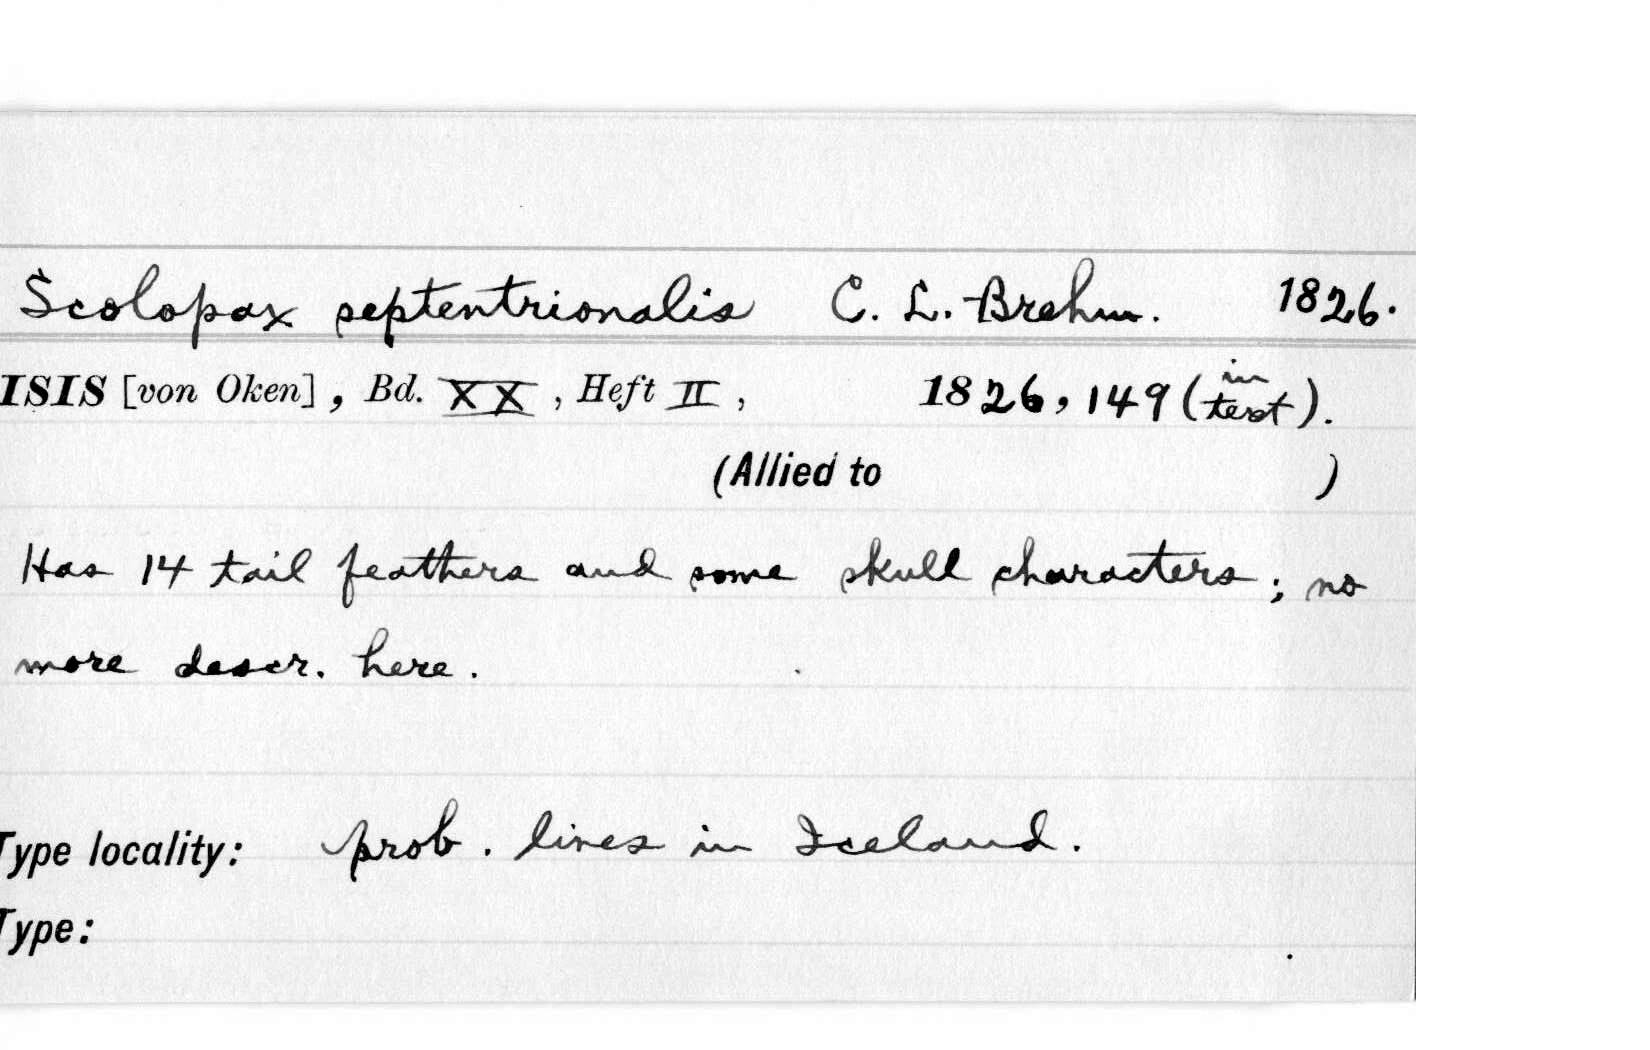 Scolopax septentrionalis C. L. Brehm. 1826.
ISIS [von Oken], Bd. XX, Heft II, 1826, 149 (in text).
(Allied to )
Has 14 tail feathers and some skull characters; no
more descr. here.
Type locality: prob. lives in Iceland.
Type: